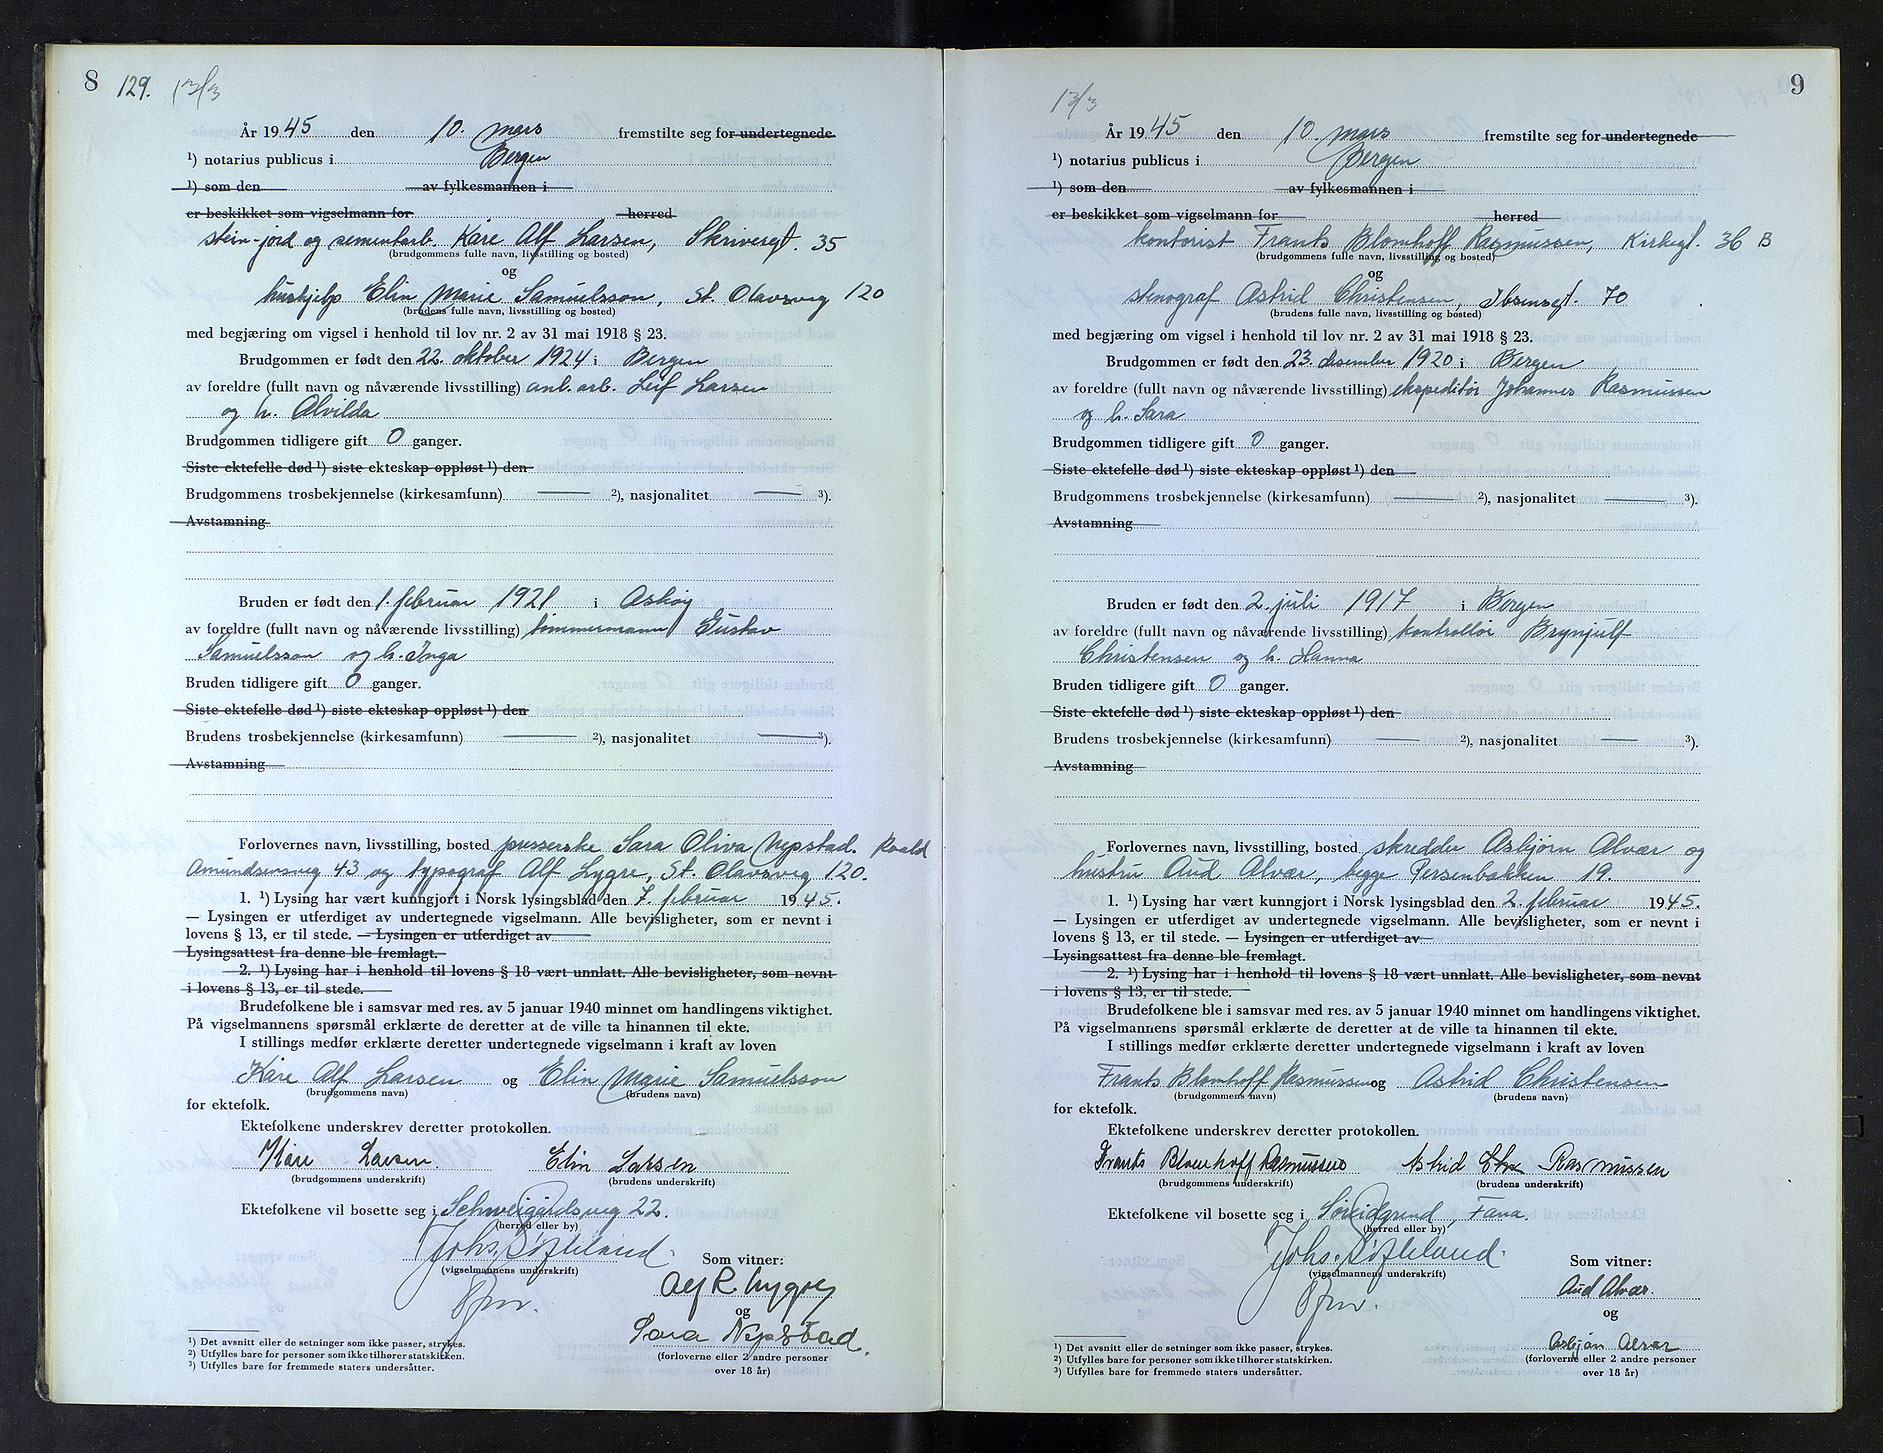 8 129. 13/3
År 1945 den 10. mars fremstilte seg for undertegnede
¹) notarius publicus i Bergen
¹) som den av fylkesmannen i
er beskikket som vigselmann for herred
stein-jord og sementarb. Kåre Alf Larsen, Skriveregt. 35
(brudgommens fulle navn, livsstilling og bosted)
og
hushjelp Elin Marie Samuelsson, St. Olavsveg 120
(brudens fulle navn, livsstilling og bosted)
med begjæring om vigsel i henhold til lov nr. 2 av 31 mai 1918 § 23.
Brudgommen er født den 22. oktober 1924 i Bergen
av foreldre (fullt navn og nåværende livsstilling) anl. arb. Leif Larsen
og h. Alvilda
Brudgommen tidligere gift 0 ganger.
Siste ektefelle død ¹) siste ekteskap oppløst ¹) den
Brudgommens trosbekjennelse (kirkesamfunn) ²), nasjonalitet ³).
Avstamning
Bruden er født den 1. februar 1921 i Askøy
av foreldre (fullt navn og nåværende livsstilling) tømmermann Gustav
Samuelsson og h. Inga
Bruden tidligere gift 0 ganger.
Siste ektefelle død ¹) siste ekteskap oppløst ¹) den
Brudens trosbekjennelse (kirkesamfunn) ²), nasjonalitet ³).
Avstamning
Forlovernes navn, livsstilling, bosted presserske Sara Oliva Nepstad. Roald
Amundsensveg 43 og typograf Alf Lygre, St. Olavsveg 120.
1. ¹) Lysing har vært kunngjort i Norsk lysingsblad den 7. februar 1945.
— Lysingen er utferdiget av undertegnede vigselmann. Alle bevisligheter, som er nevnt i
lovens § 13, er til stede. — Lysingen er utferdiget av
Lysingsattest fra denne ble fremlagt.
2. ¹) Lysing har i henhold til lovens § 18 vært unnlatt. Alle bevisligheter, som nevnt
i lovens § 13, er til stede.
Brudefolkene ble i samsvar med res. av 5 januar 1940 minnet om handlingens viktighet.
På vigselmannens spørsmål erklærte de deretter at de ville ta hinannen til ekte.
I stillings medfør erklærte deretter undertegnede vigselmann i kraft av loven
Kåre Alf Larsen og Elin Marie Samuelsson
(brudgommens navn) (brudens navn)
for ektefolk.
Ektefolkene underskrev deretter protokollen.
Kåre Larsen. Elin Larsen
(brudgommens underskrift) (brudens underskrift)
Ektefolkene vil bosette seg i Schweigårdsveg 22.
(herred eller by)
Johs. Søfteland Som vitner:
(vigselmannens underskrift)
Alf R. Lygre
og
Sara Nepstad.
(forloverne eller 2 andre personer
over 18 år)
¹) Det avsnitt eller de setninger som ikke passer, strykes.
²) Utfylles bare for personer som ikke tilhører statskirken.
³) Utfylles bare for fremmede staters undersåtter.
13/3 9
År 1945 den 10. mars fremstilte seg for undertegnede
¹) notarius publicus i Bergen
¹) som den av fylkesmannen i
er beskikket som vigselmann for herred
kontorist Frants Blomhoff Rasmussen, Kirkegt. 36 B
(brudgommens fulle navn, livsstilling og bosted)
og
stenograf Astrid Christensen, Ibsensgt. 70
(brudens fulle navn, livsstilling og bosted)
med begjæring om vigsel i henhold til lov nr. 2 av 31 mai 1918 § 23.
Brudgommen er født den 23. desember 1920 i Bergen
av foreldre (fullt navn og nåværende livsstilling) ekspeditør Johannes Rasmussen
og h. Sara
Brudgommen tidligere gift 0 ganger.
Siste ektefelle død ¹) siste ekteskap oppløst ¹) den
Brudgommens trosbekjennelse (kirkesamfunn) ²), nasjonalitet ³).
Avstamning
Bruden er født den 2. juli 1917 i Bergen
av foreldre (fullt navn og nåværende livsstilling) kontrollør Brynjulf
Christensen og h. Hanna
Bruden tidligere gift 0 ganger.
Siste ektefelle død ¹) siste ekteskap oppløst ¹) den
Brudens trosbekjennelse (kirkesamfunn) ²), nasjonalitet ³).
Avstamning
Forlovernes navn, livsstilling, bosted skredder Asbjørn Alvær og
hustru Aud Alvær, begge Persenbakken 19.
1. ¹) Lysing har vært kunngjort i Norsk lysingsblad den 2. februar 1945.
— Lysingen er utferdiget av undertegnede vigselmann. Alle bevisligheter, som er nevnt i
lovens § 13, er til stede. — Lysingen er utferdiget av
Lysingsattest fra denne ble fremlagt.
2. ¹) Lysing har i henhold til lovens § 18 vært unnlatt. Alle bevisligheter, som nevnt
i lovens § 13, er til stede.
Brudefolkene ble i samsvar med res. av 5 januar 1940 minnet om handlingens viktighet.
På vigselmannens spørsmål erklærte de deretter at de ville ta hinannen til ekte.
I stillings medfør erklærte deretter undertegnede vigselmann i kraft av loven
Frants Blomhoff Rasmussen og Astrid Christensen
(brudgommens navn) (brudens navn)
for ektefolk.
Ektefolkene underskrev deretter protokollen.
Frants Blomhoff Rasmussen Astrid Chr Rasmussen
(brudgommens underskrift) (brudens underskrift)
Ektefolkene vil bosette seg i Søreidgrend, Fana.
(herred eller by)
Johs. Søfteland Som vitner:
(vigselmannens underskrift)
Aud Alvær.
og
Asbjørn Alvær
(forloverne eller 2 andre personer
over 18 år)
¹) Det avsnitt eller de setninger som ikke passer, strykes.
²) Utfylles bare for personer som ikke tilhører statskirken.
³) Utfylles bare for fremmede staters undersåtter.